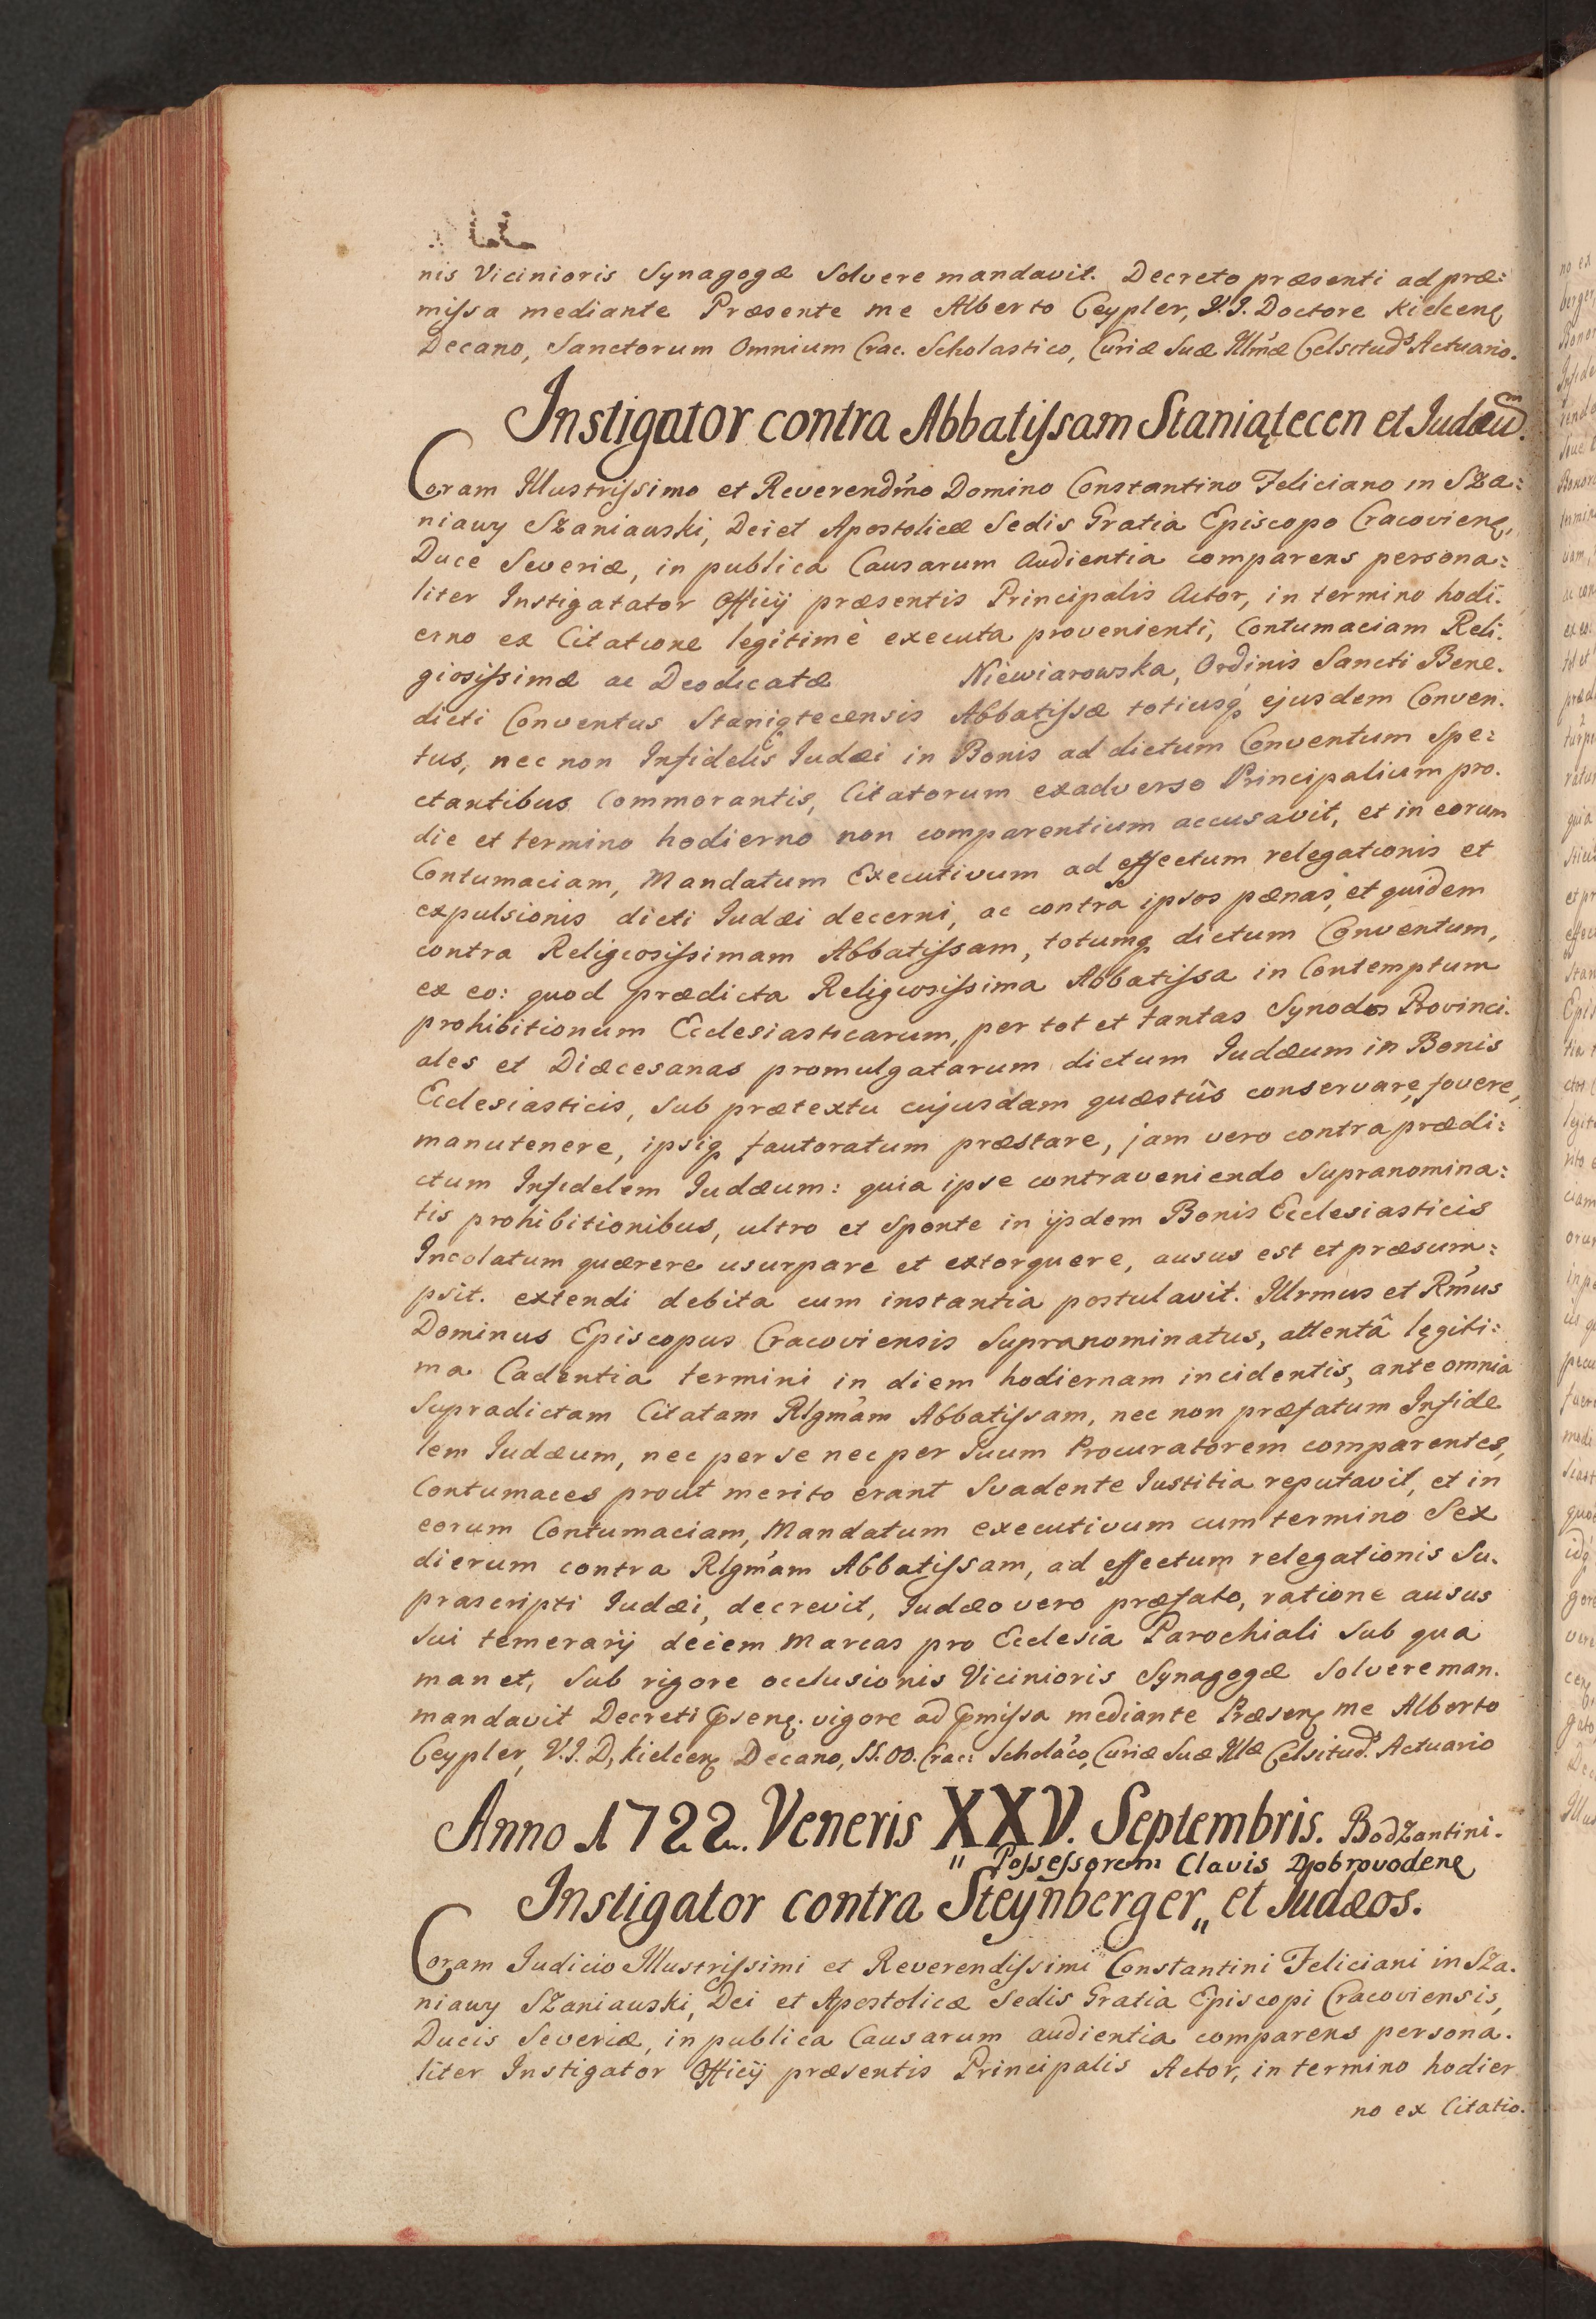 nis Vicinioris Synagogæ Solvere mandavit. Decreto præsenti ad præ:
mißa mediante Præsente me Alberto Ceypler, V.J. Doctore Kielcenȩ
Decano, Sanctorum Omnium Crac. Scholastico, Curiæ Suæ Illmæ Celsitudˢ Actuario.
Instigator contra Abbatißam Staniątecen et Iudæum.
Coram Illustrißimo et Reverendmo Domino Constantino Feliciano in Sza:
niawy Szaniawski, Dei et Apostolicæ Sedis Gratia Episcopo Cracovienȩ,
Duce Severiæ, in publica Causarum Audientia comparens persona:
liter Instigatator Officij præsentis Principalis Actor, in termino hodi:
erno ex Citatione legitimè executa provenienti, Contumaciam Reli:
giosißimæ ac Deodicatæ Niewiarowska, Ordinis Sancti Bene:
dicti Conventus Staniątecensis Abbatißæ totiusq́ ejusdem Conven:
tus, nec non Infidelis Iudæi in Bonis ad dictum Conventum Spe:
ctantibus Commorantis, Citatorum exadverso Principalium pro.
die et termino hodierno non comparentium accusavit, et in eorum
Contumaciam, Mandatum Executivum ad effectum relegationis et
expulsionis dicti Iudæi decerni, ac contra ipsos pænas, et quidem
contra Religiosißimam Abbatißam, totumq dictum Conventum,
ex eo: quod prædicta Religiosißima Abbatißa in Contemptum
prohibitionum Ecclesiasticarum, per tot et tantas Synodos Provinci:
ales et Diæcesanas promulgatarum dictum Iudæum in Bonis
Ecclesiasticis, sub prætextu cujusdam quæstûs conservare, fovere,
manutenere, ipsiq fautoratum præstare, jam vero contra prædi:
ctum Infidelem Iudæum: quia ipse contraveniendo Supranomina:
tis prohibitionibus, ultro et Sponte in ijsdem Bonis Ecclesiasticis
Incolatum quærere usurpare et extorquere, ausus est et præsum:
psit. extendi debita cum instantia postulavit. Illrmus et Rmus
Dominus Episcopus Cracoviensis Supranominatus, attentâ legiti:
ma Cadentia termini in diem hodiernam incidentis, ante omnia
Supradictam Citatam Rlgmam Abbatißam, nec non præfatum Infide
lem Iudæum, nec per se nec per Suum Procuratorem comparentes,
Contumaces prout merito erant Svadente Iustitia reputavit, et in
eorum Contumaciam, Mandatum executivum cum termino Sex
dierum contra Rlgmam Abbatißam, ad effectum relegationis Su:
prascripti Iudæi, decrevit, Iudæo vero præfato, ratione ausus
sui temerarij decem Marcas pro Ecclesia Parochiali Sub qua
manet, Sub rigore occlusionis Vicinioris Synagogæ Solvere man:
mandavit Decreti Psenȩ. vigore ad Pmißa mediante Præsenȩ me Alberto
Ceypler, V.J.D, Kielcenȩ Decano, SS. OO. Crac: Scholaco, Curiæ Suæ Illæ Celsitudˢ. Actuario
Anno 1722. Veneris XXV. Septembris. Bodzantini.
" Poßeßorem Clavis Dobrovodenȩ
Instigator contra Steynberger „ et Iudæos.
Coram Iudicio Illustrißimi et Reverendißimi Constantini Feliciani in Sza:
niawy Szaniawski, Dei et Apostolicæ Sedis Gratia Episcopi Cracoviensis,
Ducis Severiæ, in publica Causarum audientia comparens persona:
liter Instigator Officij præsentis Principalis Actor, in termino hodier
no ex Citatio: